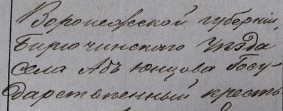 Воронежской губерніи,
Бирючинскаго Уѣзда
села Государ-
дарственный кресть